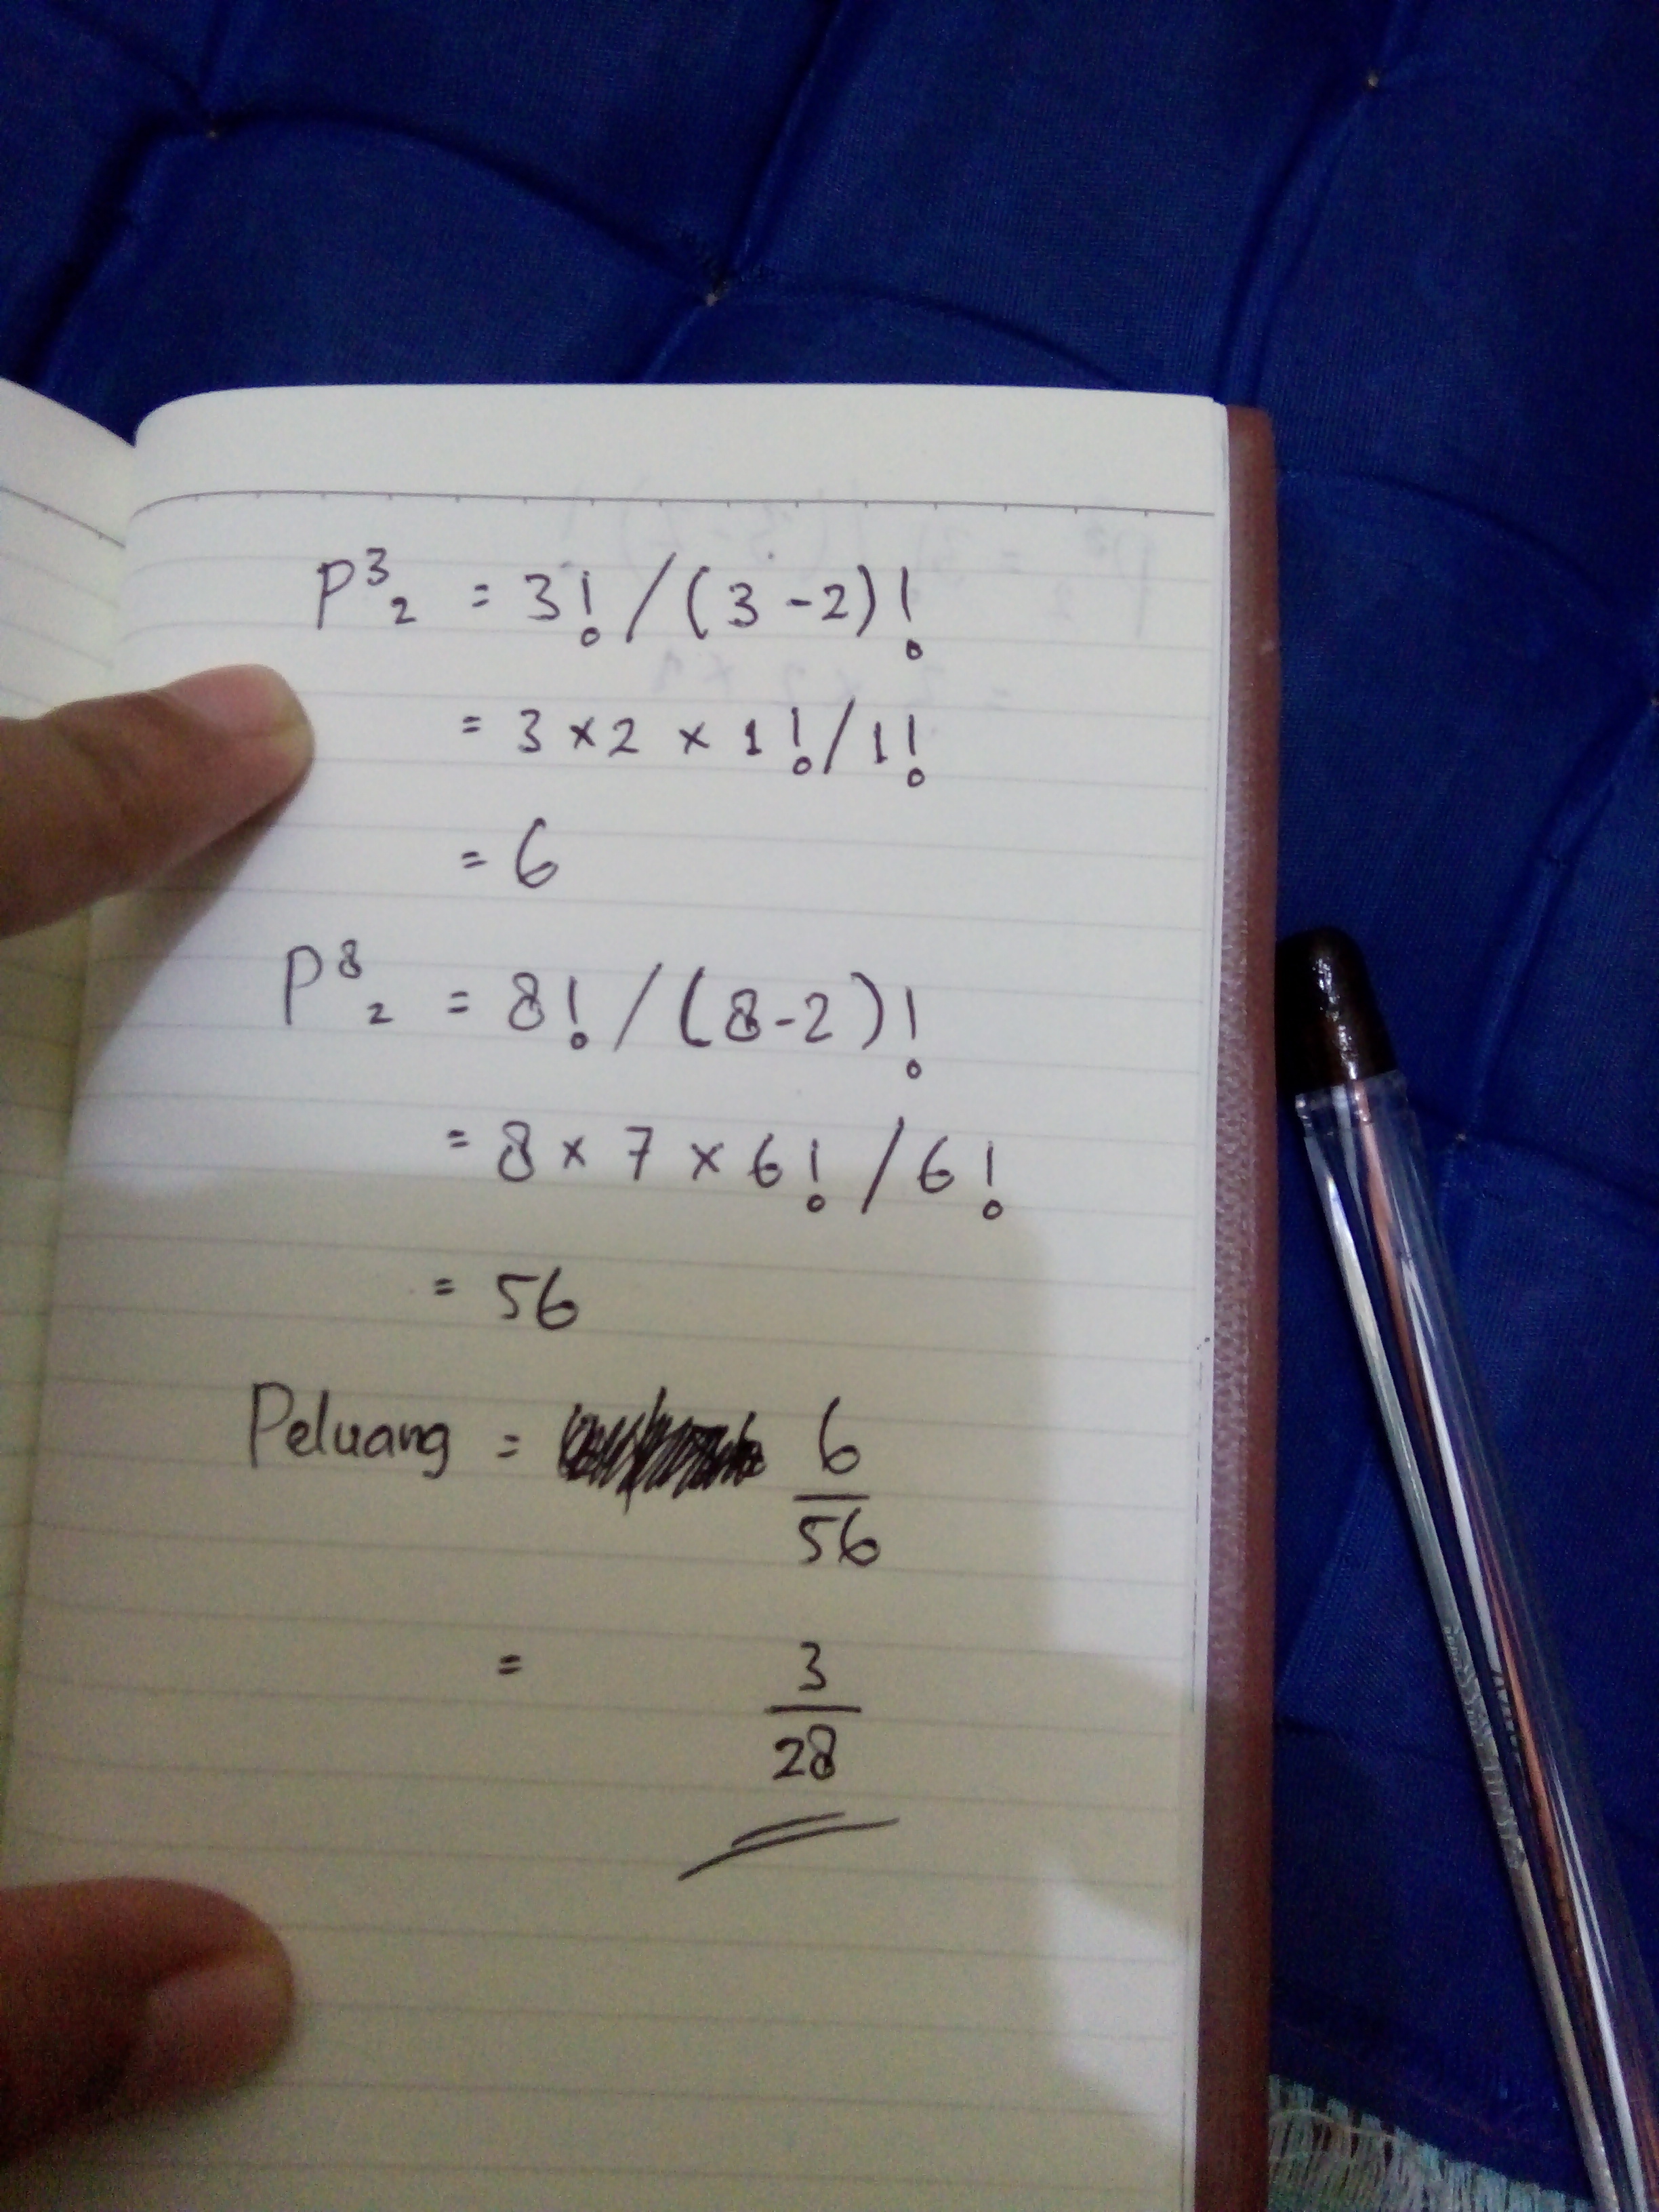 P³₂ = 3! / (3-2)!
= 3 × 2 × 1! / 1!
= 6
P⁸₂ = 8! / (8-2)!
= 8 × 7 × 6! / 6!
= 56
Peluang = 6/56
= 3/28